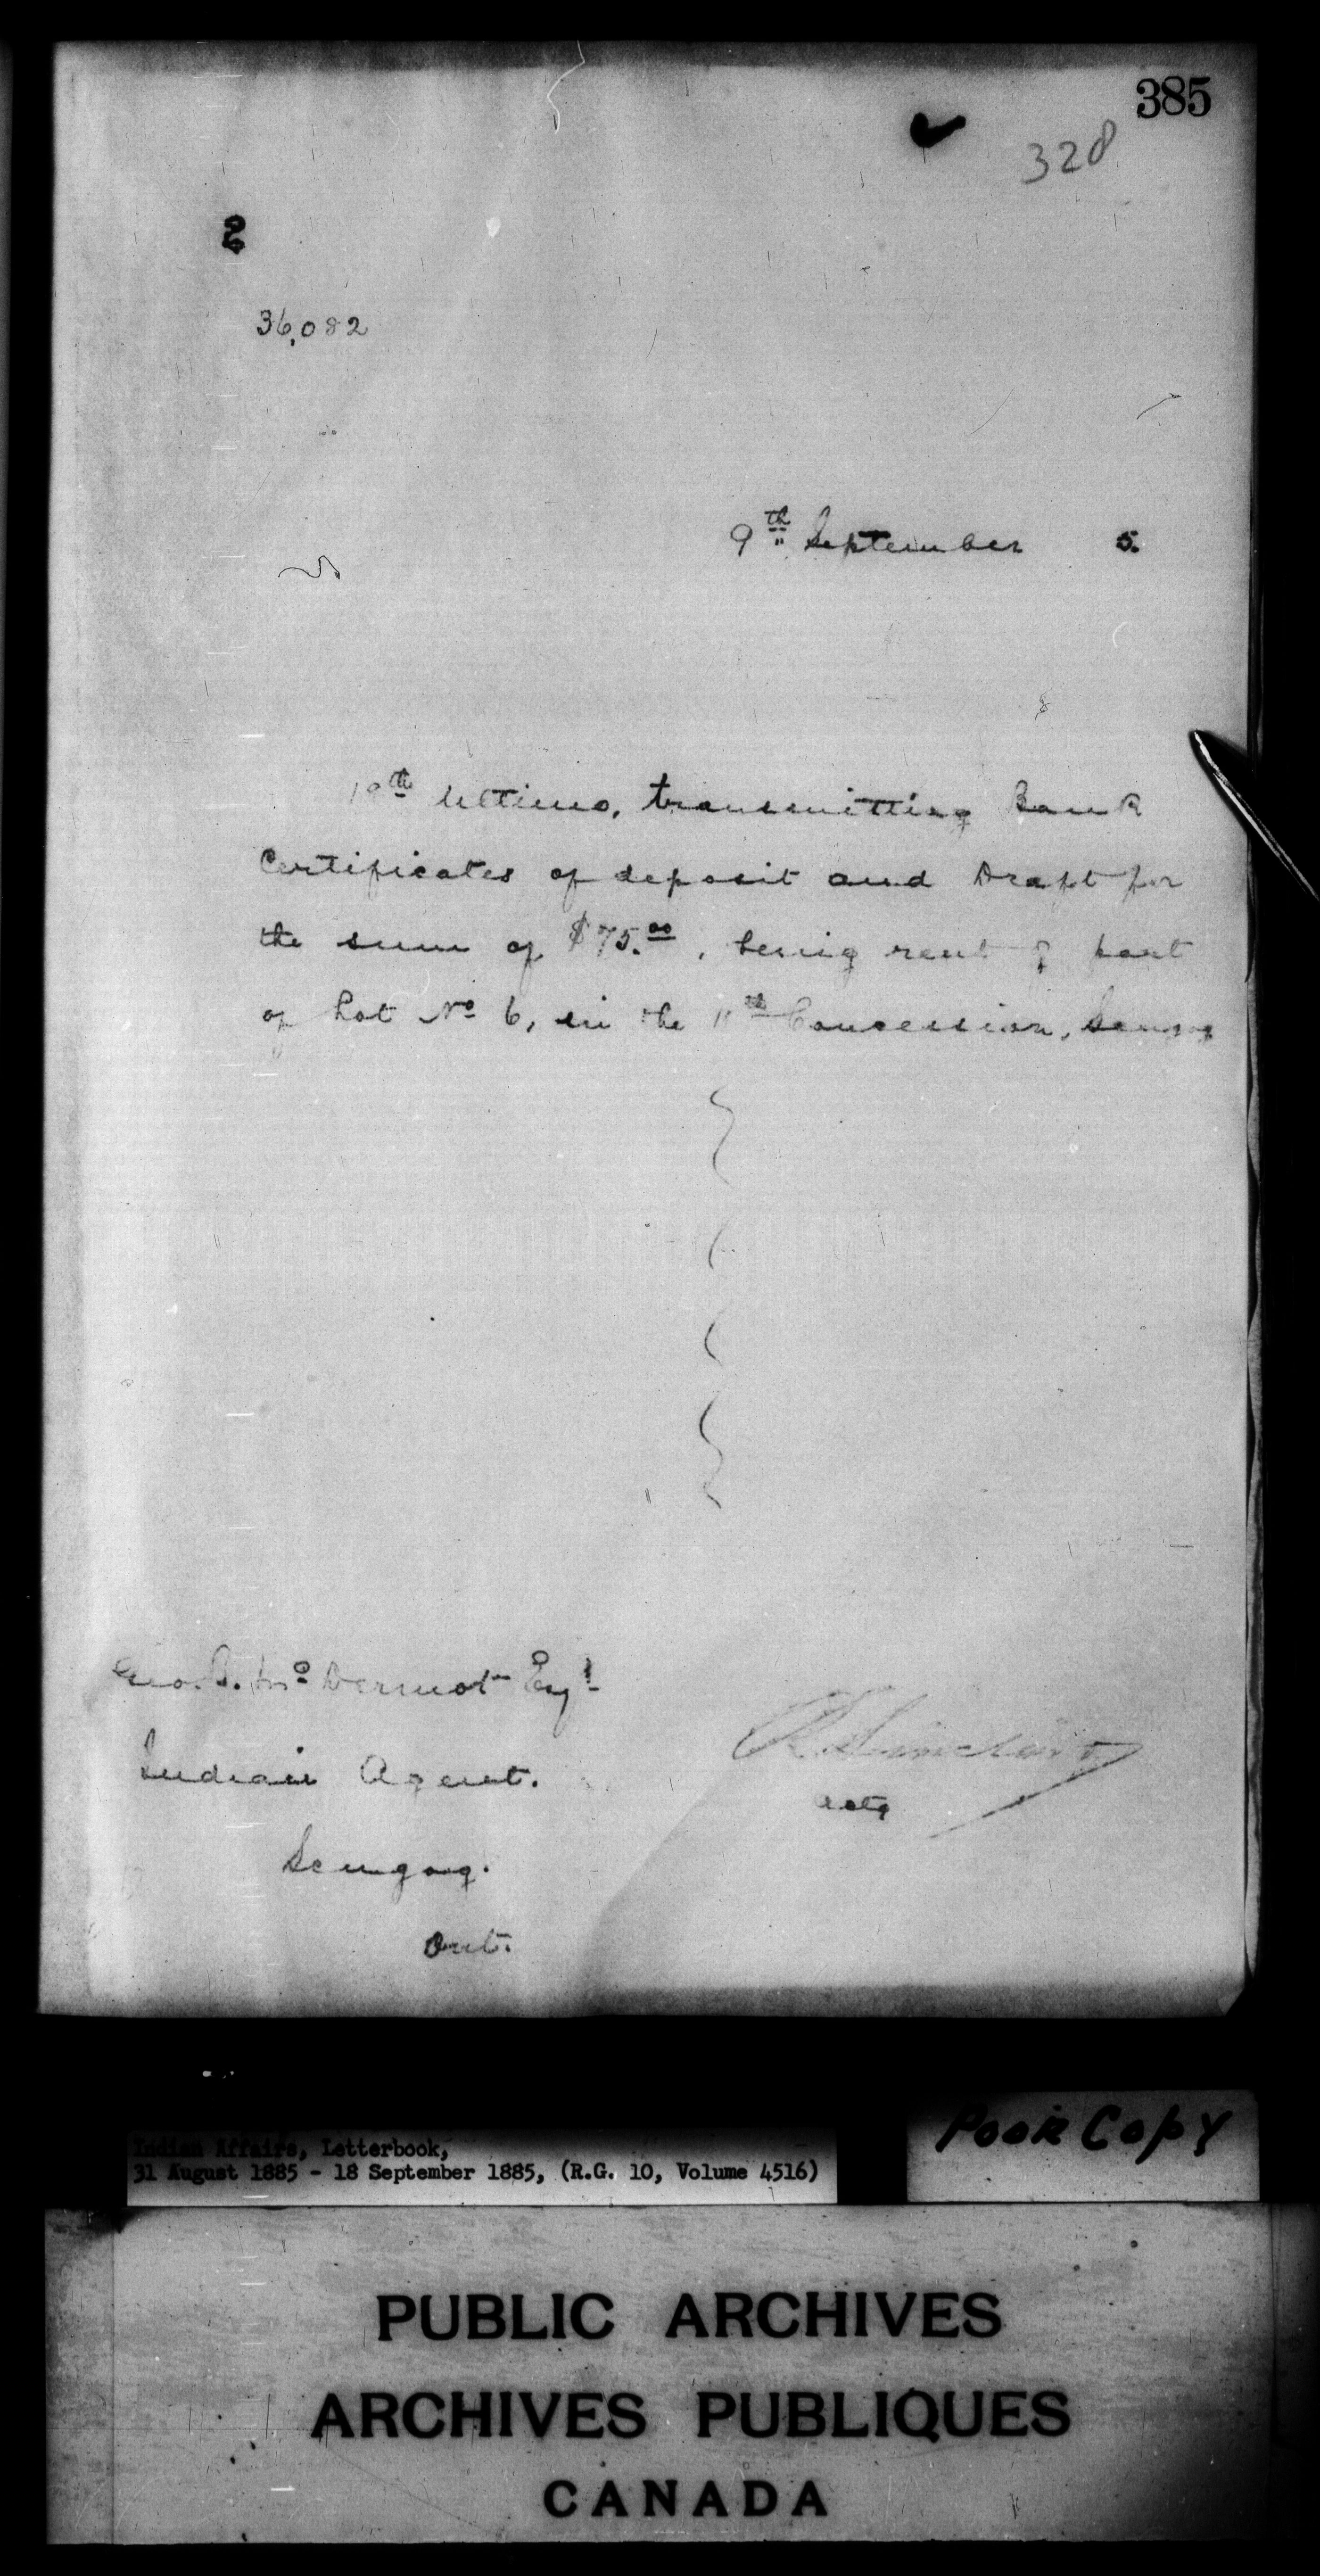 385
328
2
36,082
9th September 5.
19th Ultimo, transmitting Bank
Certificates of deposit and Draft for
the sum of $75.00, being rent of part
of Lot No 6, in the 11th Concession, Scugog
Geo. B. McDermot Esq.
Indian Agent.
Scugog.
Ont.
R. Sinclair
Actg
Poor Copy
Indian Affairs, Letterbook,
31 August 1885 - 18 September 1885, (R.G. 10, Volume 4516)
PUBLIC ARCHIVES
ARCHIVES PUBLIQUES
CANADA